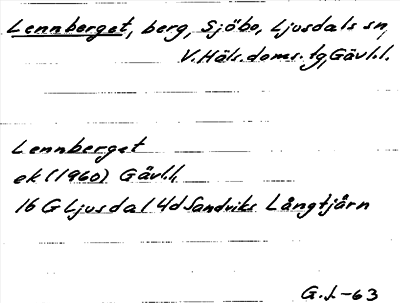 Lennberget, berg, Sjöbo, Ljusdals sn,
V. Häls. doms. tg, Gävl.l.
Lennberget
ek (1960) Gävl.l,
16 G Ljusdal 4d Sandviks Långtjärn
G.J.-63